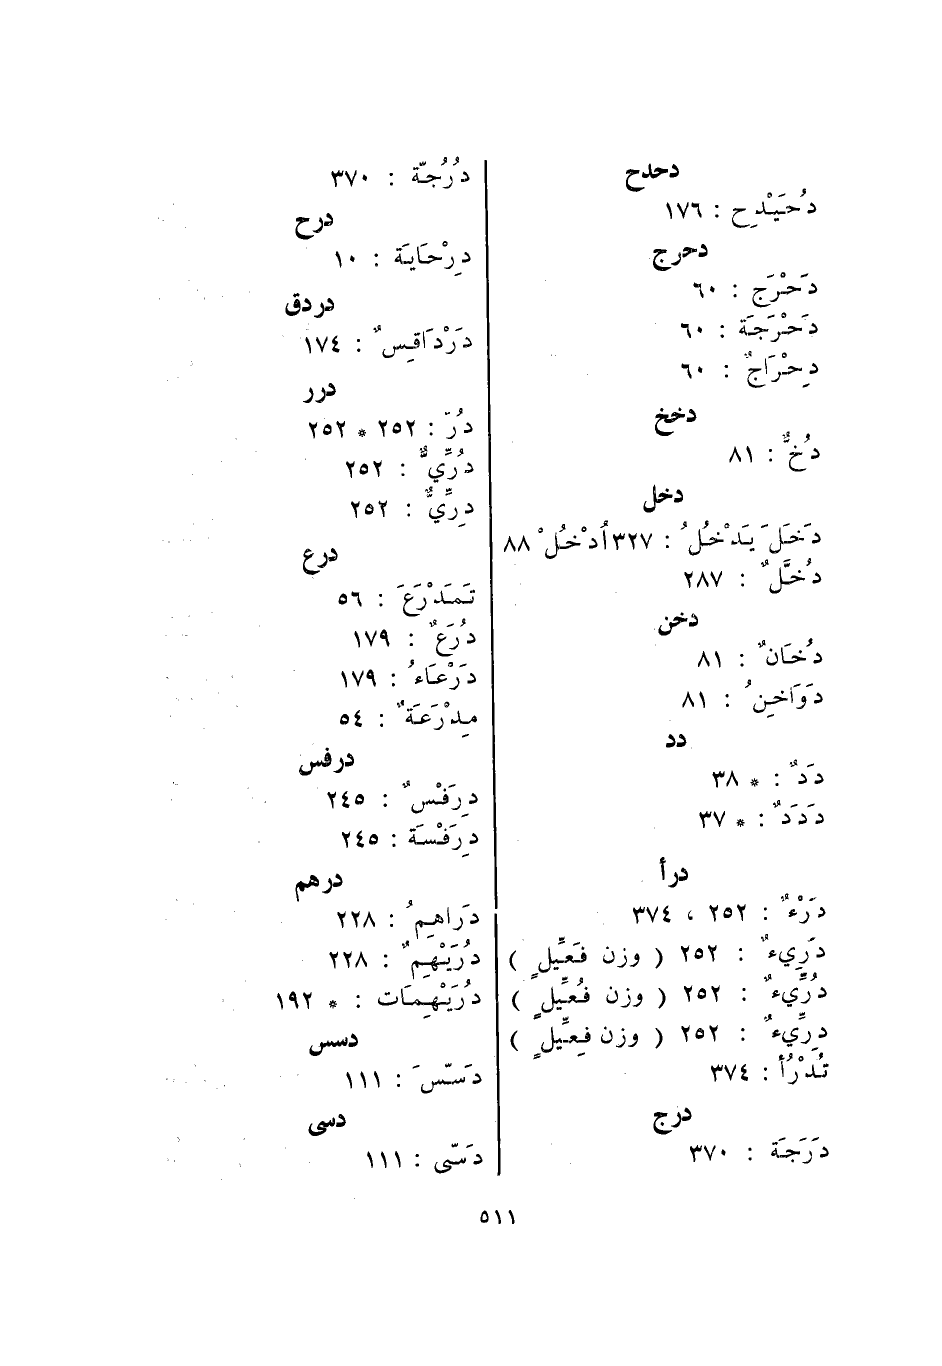 دحدح
دُحَيْدِح : ١٧٦
دحرج
دَحْرَج : ٦٠
دَحْرَجَة : ٦٠
دِحْرَاجٌ : ٦٠
دخخ
دُخٌّ : ٨١
دخل
دَخَلَ يَدْخُلُ : ٣٢٧ اُدْخُلْ ٨٨
دُخَّلٌ : ٢٨٧
دخن
دُخَانٌ : ٨١
دَوَاخِنُ : ٨١
دد
دَدٌ : * ٣٨
دَدَدٌ : * ٣٧
درأ
دَرْءٌ : ٢٥٢ ، ٣٧٤
دَرِّيءٌ : ٢٥٢ ( وزن فَعِّيلٍ )
دُرِّيءٌ : ٢٥٢ ( وزن فُعِّيلٍ )
دِرِّيءٌ : ٢٥٢ ( وزن فِعِّيلٍ )
تُدْرَأُ : ٣٧٤
درج
دَرَجَة : ٣٧٠
دُرُجَّة : ٣٧٠
درح
دِرْحَايَة : ١٠
دردق
دَرْدَاقِسٌ : ١٧٤
درر
دُرّ : ٢٥٢ * ٢٥٢
دُرِّيٌّ : ٢٥٢
دِرِّيٌّ : ٢٥٢
درع
تَمَدْرَعَ : ٥٦
دُرَعٌ : ١٧٩
دَرْعَاءُ : ١٧٩
مِدْرَعَةٌ : ٥٤
درفس
دِرَفْسٌ : ٢٤٥
دِرَفْسَة : ٢٤٥
درهم
دَراهِمُ : ٢٢٨
دُرَيْهِمٌ : ٢٢٨
دُرَيْهِمَات : * ١٩٢
دسس
دَسّسَ : ١١١
دسى
دَسّى : ١١١
٥١١